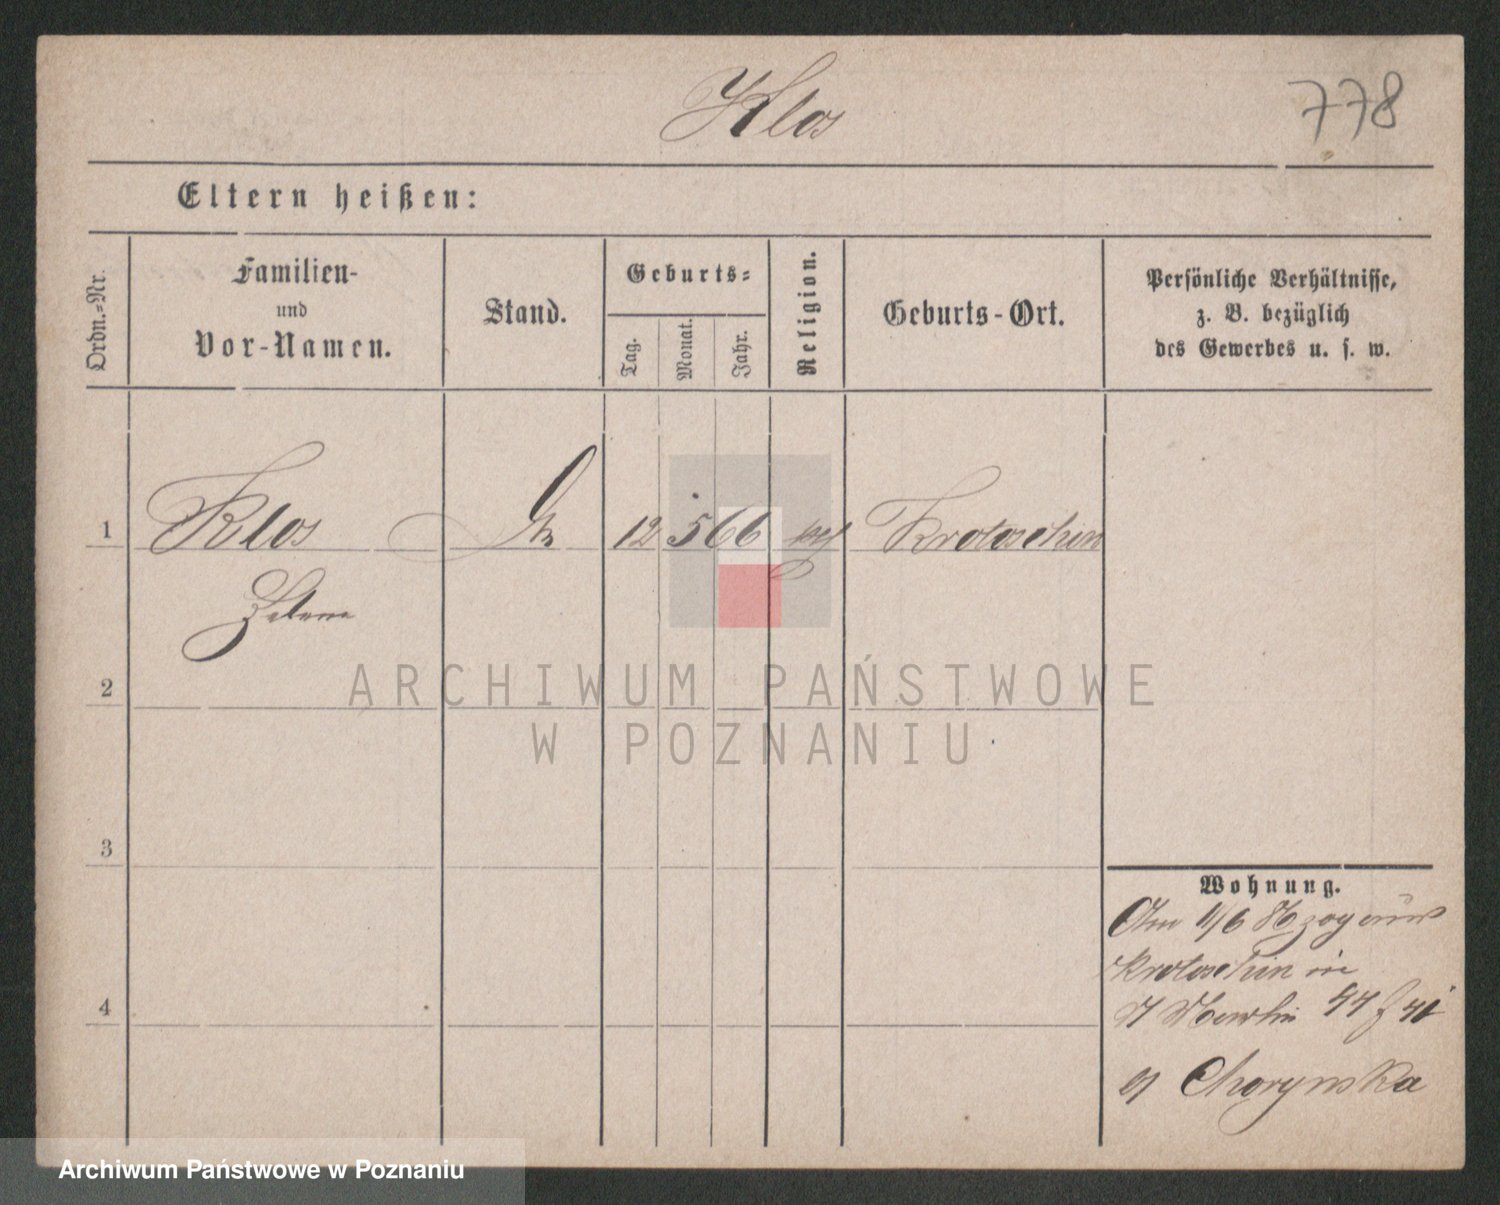 Klos
778
Eltern heißen:
Ordn.-Nr.
Familien-
und
Vor-Namen.
Stand.
Geburts-
Tag.
Monat.
Jahr.
Religion.
Geburts-Ort.
Persönliche Verhältnisse,
z. B. bezüglich
des Gewerbes u. s. w.
1 Klos 12 5 66 Krotoschin
2
3
4
Wohnung.
Am 11/6
Krotoschin in
St Martin
Chorynska
ARCHIWUM PAŃSTWOWE
W POZNANIU
Archiwum Państwowe w Poznaniu